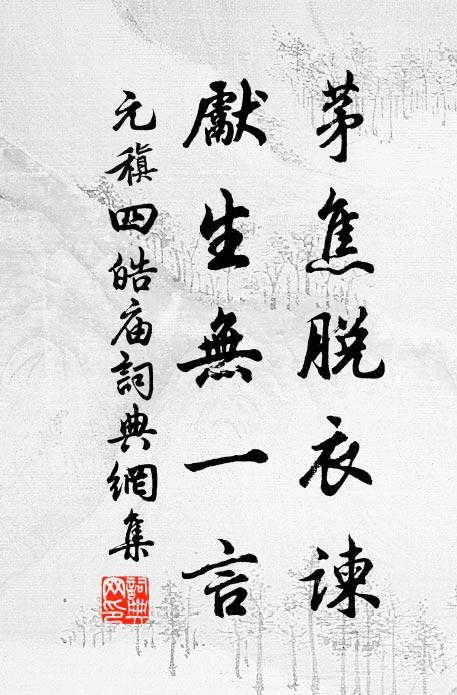 茅焦脱衣諫
獻生無一言
元稹四皓庙詞典網集
詞典